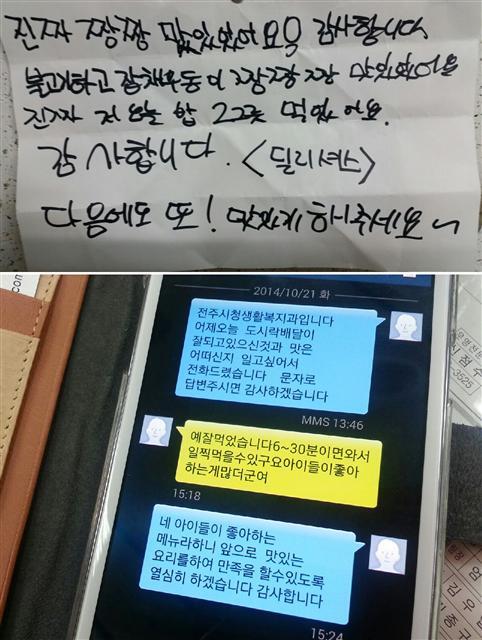 진짜 짱짱 맜있있어요 감사합니다
불고기하고 잡채우동이 짱짱짱 맛있있어요
진짜 저 오늘 밥 2그릇 먹었어요.
감사합니다. <딜리셔스>
다음에도 또! 맛있게 해주세요~
2014/10/21 화
전주시청생활복지과입니다
어제오늘 도시락배달이
잘되고있으신것과 맛은
어떠신지 일고싶어서
전화드렸습니다 문자로
답변주시면 감사하겠습니다
MMS 13:46
예잘먹었습니다6~30분이면와서
일찍먹을수있구요아이들이좋아
하는게많더군여
15:18
네 아이들이 좋아하는
메뉴라하니 앞으로 맛있는
요리를하여 만족을 할수있도록
열심히 하겠습니다 감사합니다
15:24
com
3525